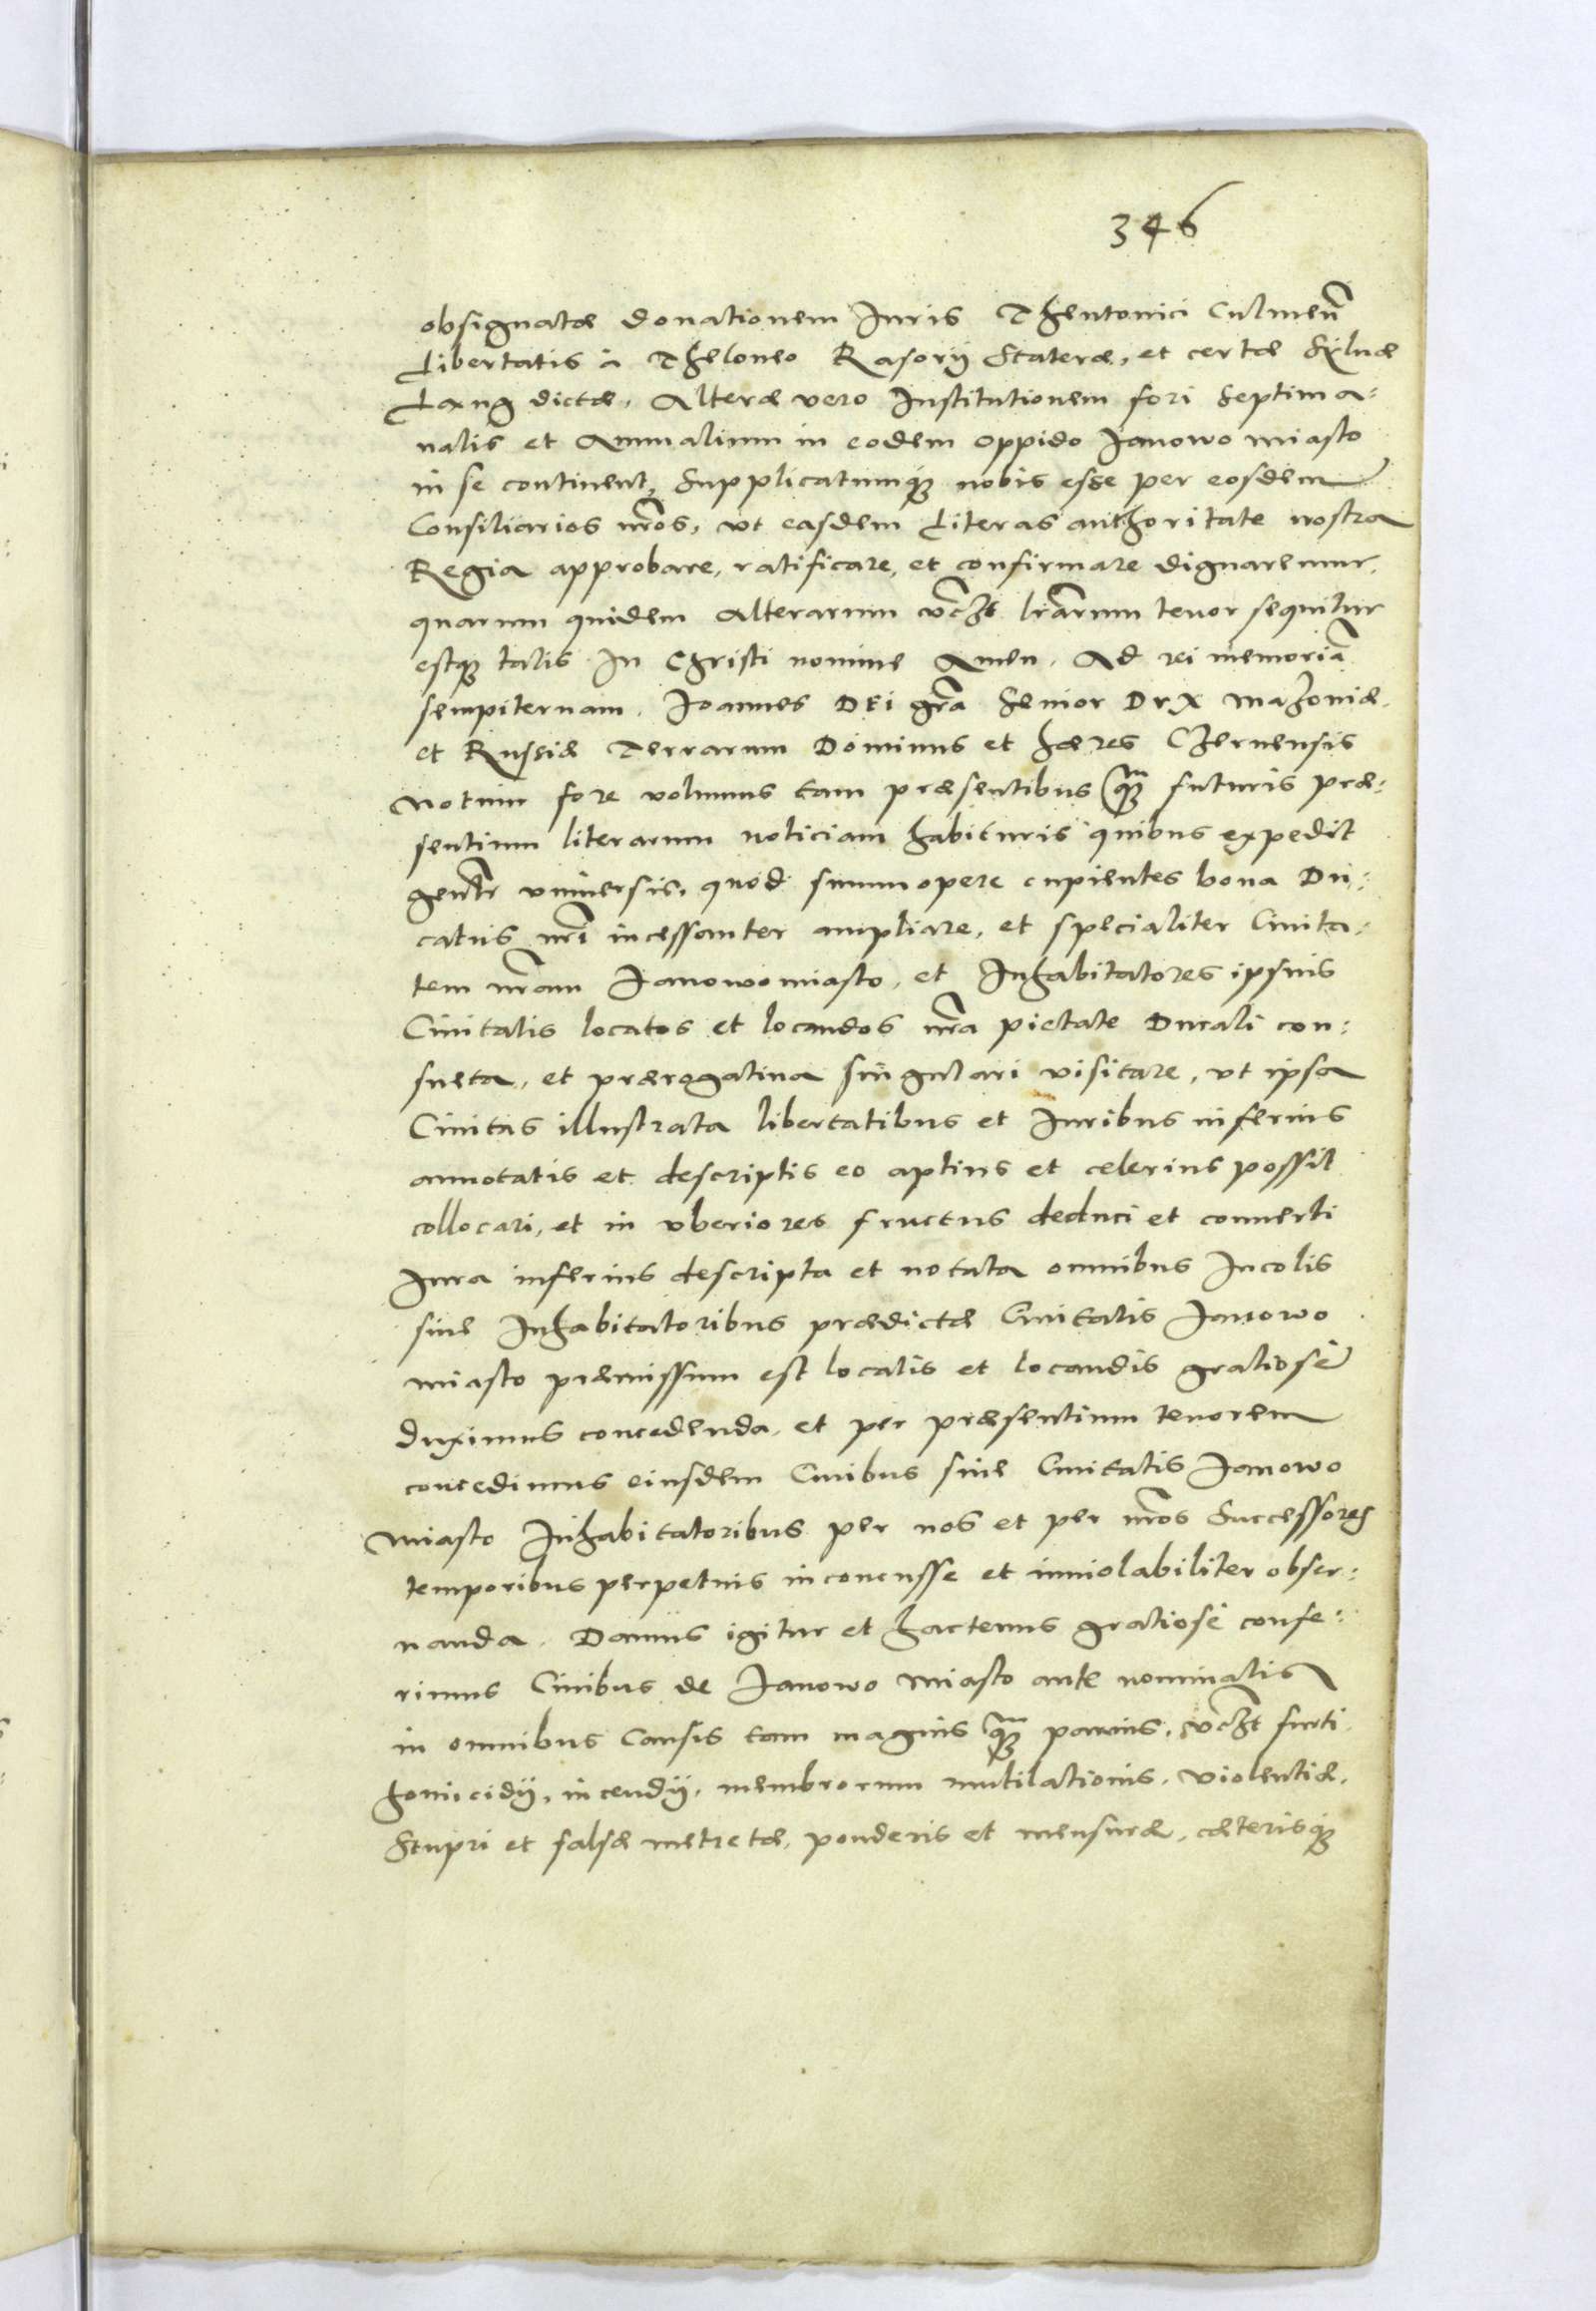 346
obsignatæ donationem Iuris Theutonici Culmeñ
Libertatis à Theloneo Rasorij Stateræ, et certæ Syluæ
Łang dictæ, Alteræ vero Institutionem fori Septima:
nalis et Annualium in eodem oppido Janowo miasto
in se continent, Supplicatumq; nobis esse per eosdem
Consiliarios nr̃os, vt easdem Literas authoritate nostra
Regia approbare, ratificare, et confirmare dignaremur.
quarum quidem Alterarum vc̃zt lr̃arum tenor sequitur
estq; talis In Christi nomine Amen. Ad rei memoriã
sempiternam. Joannes DEi gr̃a Senior Dux Mazoniæ.
et Russiæ Terrarum Dominus et hæres Czernensis
Notum fore volumus tam præsentibus q̃; futuris præ:
sentium literarum noticiam habituris quibus expedit
genr̃ vniuersis, quod summopere cupientes bona Du:
catus nr̃i incessanter ampliare, et specialiter Ciuita:
tem nr̃am Janowomiasto, et Inhabitatores ipsuis
Ciuitatis locatos et locandos nr̃a pietate Ducali con:
sueta, et prærogatiua singulari visitare, vt ipsa
Ciuitas illustrata libertatibus et Iuribus inferius
annotatis et descriptis eo aptius et celerius possit
collocari, et in vberiores fructus deduci et conuerti
Jura inferius descripta et notata omnibus Incolis
siue Inhabitatoribus prædictæ Ciuitatis Janowo
miasto præmissum est locatis et locandis gratiosè
duximus concedenda, et per præsentium tenorem
concedimus eiusdem Ciuibus siue Ciuitatis Janowo
miasto Inhabitatoribus per nos et per nr̃os Successores
temporibus perpetuis inconcusse et inuiolabiliter obser:
uanda. Damus igitur et hactenus gratiosè confe:
rimus Ciuibus de Janowo Miasto ante nominatis
in omnibus Causis tam magnis q̃; paruis, vc̃zt furti
homicidij, incendij, membrorum mutilationis, violentiæ,
Stupri et falsæ metretæ, ponderis et mensuræ, cæterisq;